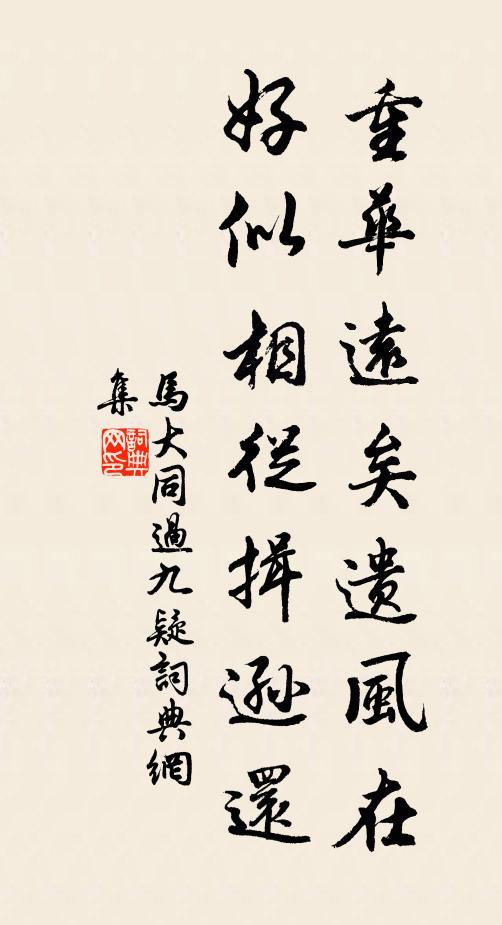 重華遠矣遺風在
好似相從揖遜還
馬大同過九疑詞典網
集
詞典网印